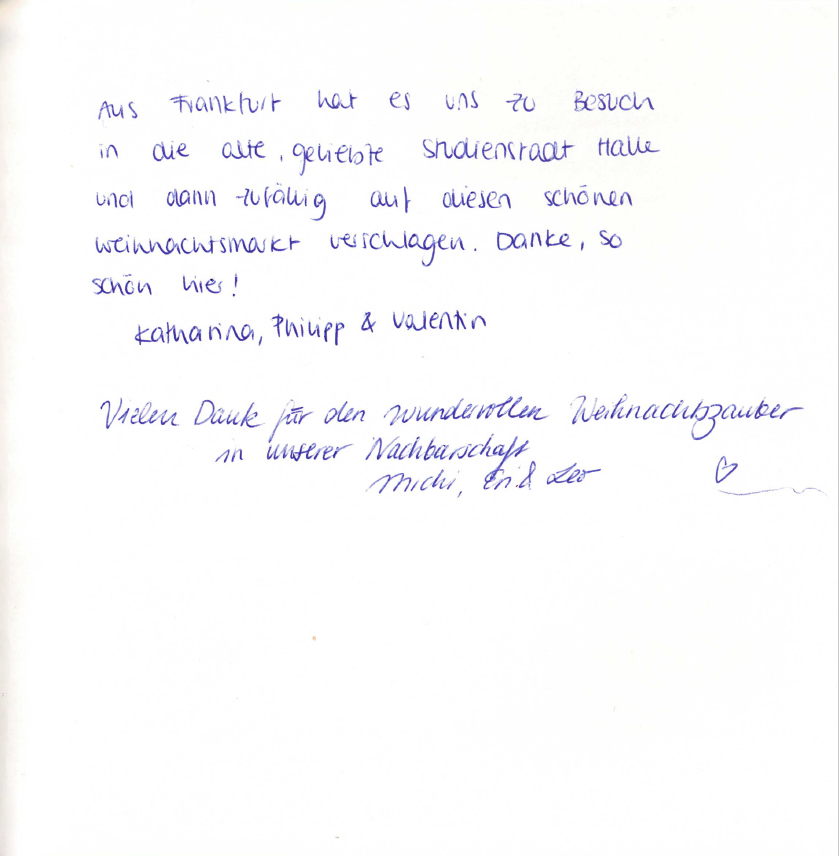 Aus Frankfurt hat es uns zu Besuch
in die alte, geliebte Studienstadt Halle
und dann zufällig auf diesen schönen
Weihnachtsmarkt verschlagen. Danke, so
schön hier!
Katharina, Philipp & Valentin
Vielen Dank für den wundervollen Weihnachtszauber
in unserer Nachbarschaft
Michi, & Leo